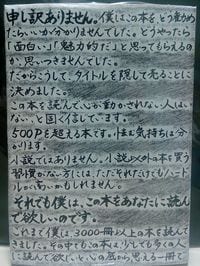 申し訳ありません。僕はこの本を、どう勧め
たらいいか分かりませんでした。どうやったら
「面白い」「魅力的だ」と思ってもらえるの
か、思いつきませんでした。
だからこうして、タイトルを隠して売ることに
決めました。
この本を読んで心が動かされない人はい
ない、と固く信じてます。
500Pを超える本です。怯む気持ちは分
かります。
小説ではありません。小説以外の本を買う
習慣がない方には、ただそれだけでもハード
ルが高いかもしれません。
それでも僕は、この本をあなたに読ん
で欲しいのです。
これまで僕は3000冊以上の本を読んで
きました。その中でもこの本は、少しでも多くの人
に読んで欲しいと心の底から思える一冊で